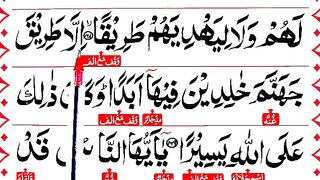 لَهُمْ وَلَا لِيَهْدِيَهُمْ طَرِيْقًا ۙ اِلَّا طَرِيْقَ
وقف مع الف
جَهَنَّمَ خٰلِدِيْنَ فِيْهَآ اَبَدًا ؕ وَكَانَ ذٰلِكَ
غنّه مدجائز وقف مع الف
عَلَى اللّٰهِ يَسِيْرًا يٰۤاَيُّهَا النَّاسُ قَدْ
وقف مع الف غنّه